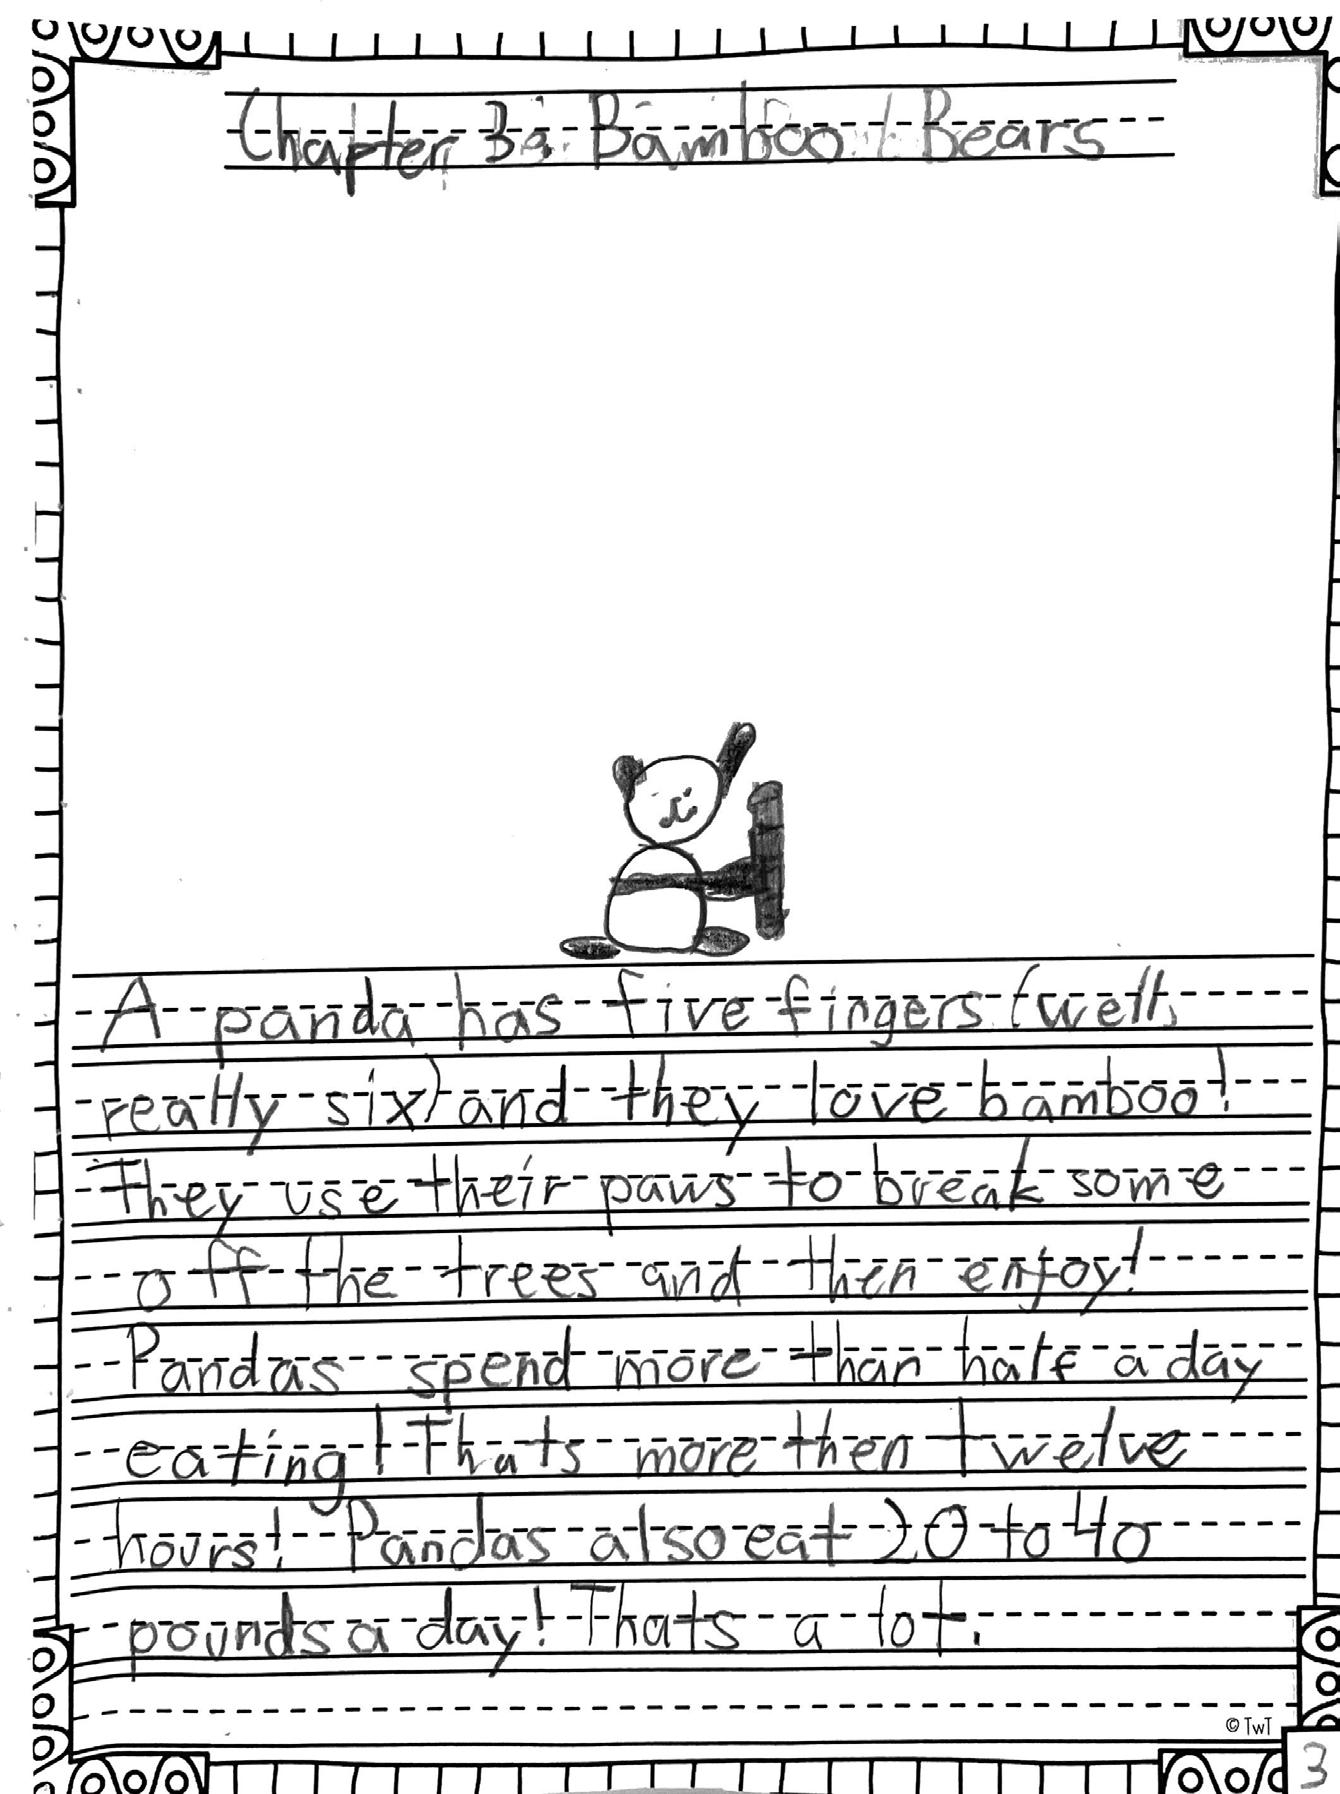 Chapter 3: Bamboo Bears
A panda has five fingers (well,
really six) and they love bamboo!
They use their paws to break some
off the trees and then enjoy!
Pandas spend more than half a day
eating! Thats more then twelve
hours! Pandas also eat 20 to 40
pounds a day! Thats a lot.
© TwT
3